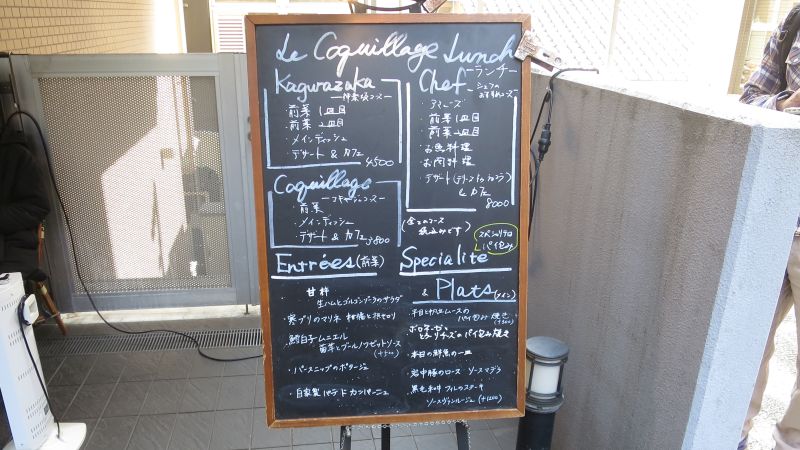 Le Coquillage Lunch
ーランチー
Kagurazaka
ー神楽坂コースー
・前菜1皿目
・前菜2皿目
・メインディッシュ
・デザート & カフェ
4500
Chef
ーシェフの
おすすめコースー
・アミューズ
・前菜1皿目
・前菜2皿目
・お魚料理
・お肉料理
・デザート
& カフェ
8000
Coquillage
ーコキヤージュコースー
・前菜
・メインディッシュ
・デザート & カフェ
3800
(全てのコース
税込みです)
スペシャリテは
パイ包み
Entrées(前菜)
・甘柿
生ハムとゴルゴンゾーラのサラダ
・寒ブリのマリネ 柑橘と根セロリ
・鱈白子ムニエル
菊芋とブールノワゼットソース
(+500)
・パースニップのポタージュ
・自家製 パテ ド カンパーニュ
Specialité
& Plats(メイン)
・平目と帆立ムースの
パイ包み焼き
(+500)
・ボロネーゼと
チーズのパイ包み焼き
・本日の鮮魚の一皿
・岩中豚のロース ソースマデラ
・黒毛和牛 フィレのステーキ
ソースヴァンルージュ (+1200)